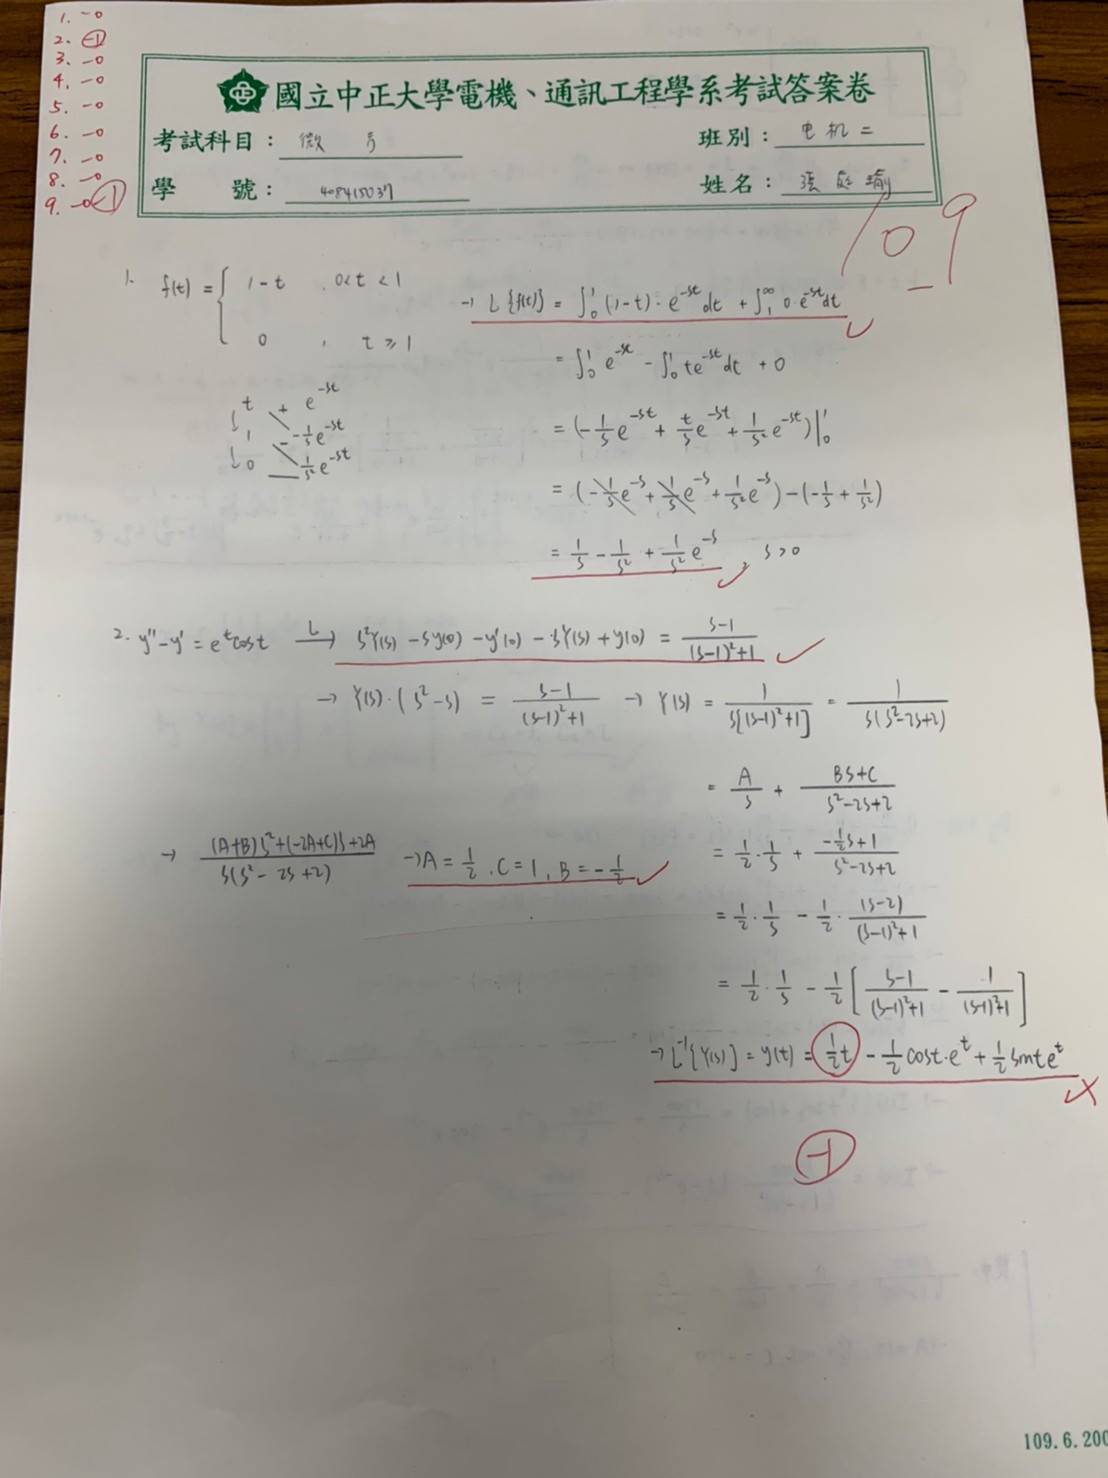 1. -0
2. -1
3. -0
4. -0
5. -0
6. -0
7. -0
8. -0
9. -0 -1
國立中正大學電機、通訊工程學系考試答案卷
考試科目： 微
班別： 电机二
學 號： 408415037
姓名： 張庭瑜
109
1. f(t) = { 1-t , 0<t<1
0 , t≥1
→ L{f(t)} = ∫₀¹ (1-t)·e^{-st}dt + ∫₁^∞ 0·e^{-st}dt
= ∫₀¹ e^{-st} - ∫₀¹ te^{-st}dt + 0
t + e^{-st}
1 - -1/s e^{-st}
0 1/s² e^{-st}
= (-1/s e^{-st} + t/s e^{-st} + 1/s² e^{-st})|₀¹
= (-1/s e^{-s} + 1/s e^{-s} + 1/s² e^{-s}) - (-1/s + 1/s²)
= 1/s - 1/s² + 1/s² e^{-s} , s>0
2. y''-y' = e^t cost L→ s²Y(s) - sy(0) - y'(0) - sY(s) + y(0) = (s-1)/((s-1)²+1)
→ Y(s)·(s²-s) = (s-1)/((s-1)²+1) → Y(s) = 1/(s[(s-1)²+1]) = 1/(s(s²-2s+2))
= A/s + (Bs+C)/(s²-2s+2)
→ ((A+B)s²+(-2A+C)s+2A)/(s(s²-2s+2)) → A = 1/2 , C = 1 , B = -1/2
= 1/2·1/s + (-1/2 s+1)/(s²-2s+2)
= 1/2·1/s - 1/2·(s-2)/((s-1)²+1)
= 1/2·1/s - 1/2[(s-1)/((s-1)²+1) - 1/((s-1)²+1)]
→ L⁻¹{Y(s)} = y(t) = 1/2 t - 1/2 cost·e^t + 1/2 sint e^t
-1
109.6.200